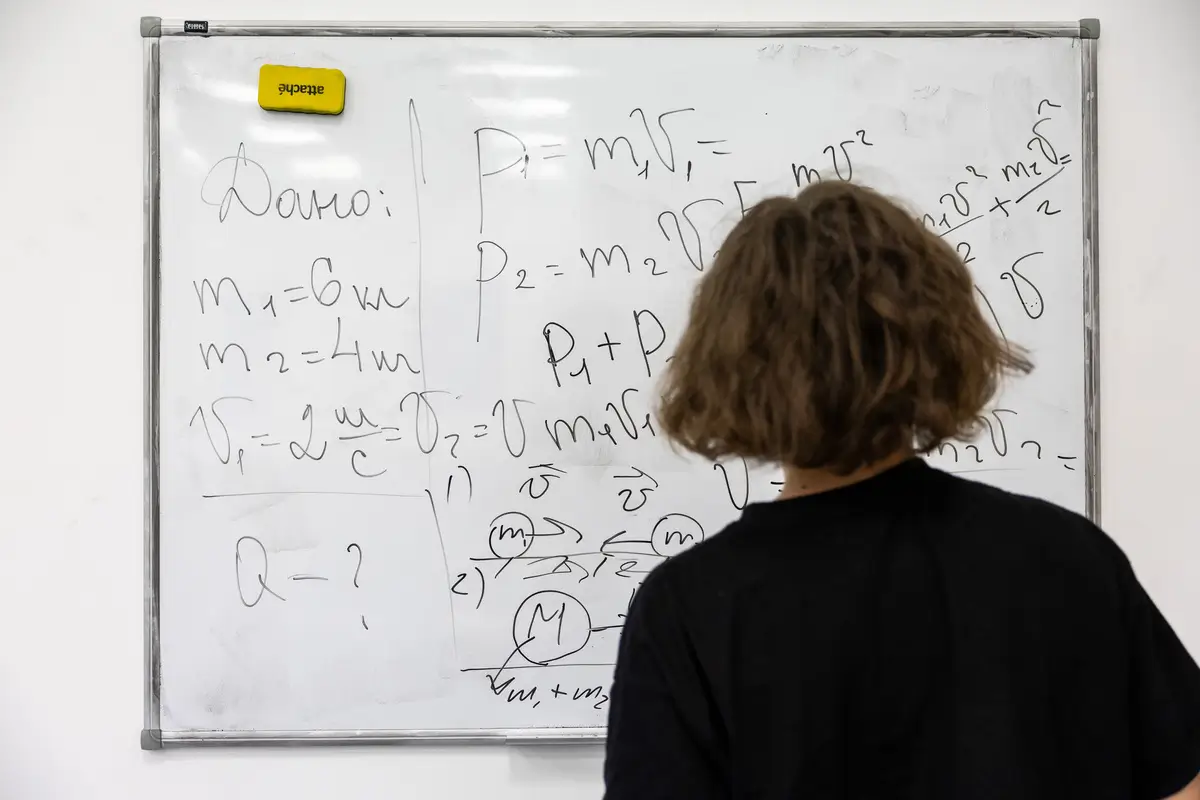 attaché
Дано:
m₁ = 6 кг
m₂ = 4 кг
v₁ = 2 м/с = v₂ = v
Q – ?
p₁ = m₁v₁ =
p₂ = m₂v
mv²
m₁v²/2 + m₂v²/2 =
v
p₁ + p
m₁v₁
m₂v₂ =
v =
1) v⃗ v⃗
m₁ m
2)
M
m₁ + m₂